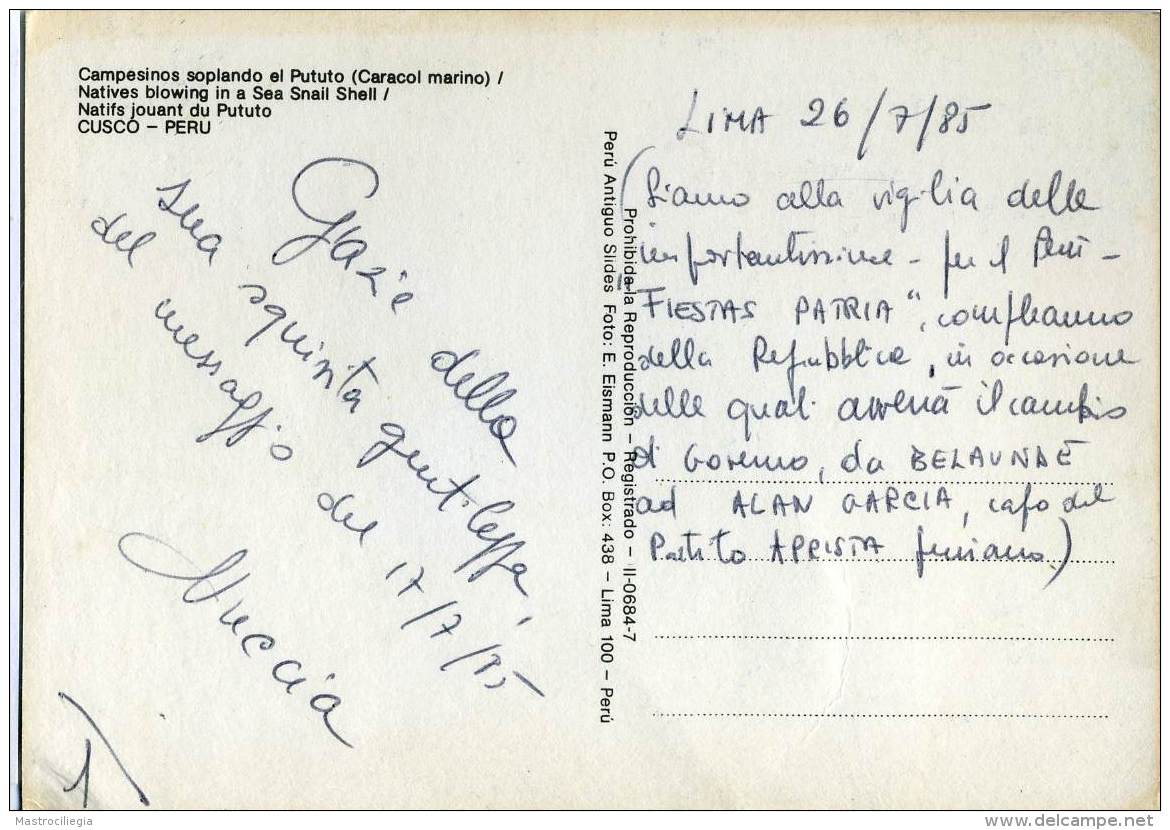 Campesinos soplando el Pututo (Caracol marino) /
Natives blowing in a Sea Snail Shell /
Natifs jouant du Pututo
CUSCO – PERU
Grazie della
sua squisita gentilezza,
del messaggio del 17/7/85
Nuccia
Perú Antiguo Slides Foto: E. Eismann P.O. Box: 438 – Lima 100 – Perú
Prohibida la Reproducción – Registrado – II-0684-7
LIMA 26/7/85
(Siamo alla vigilia delle
importantissime – per il Perù –
"FIESTAS PATRIA", compleanno
della Repubblica, in occasione
delle quali avverrà il cambio
di Governo, da BELAUNDE
ad ALAN GARCIA, capo del
Partito APRISTA peruviano.)
Mastrociliegia
www.delcampe.net